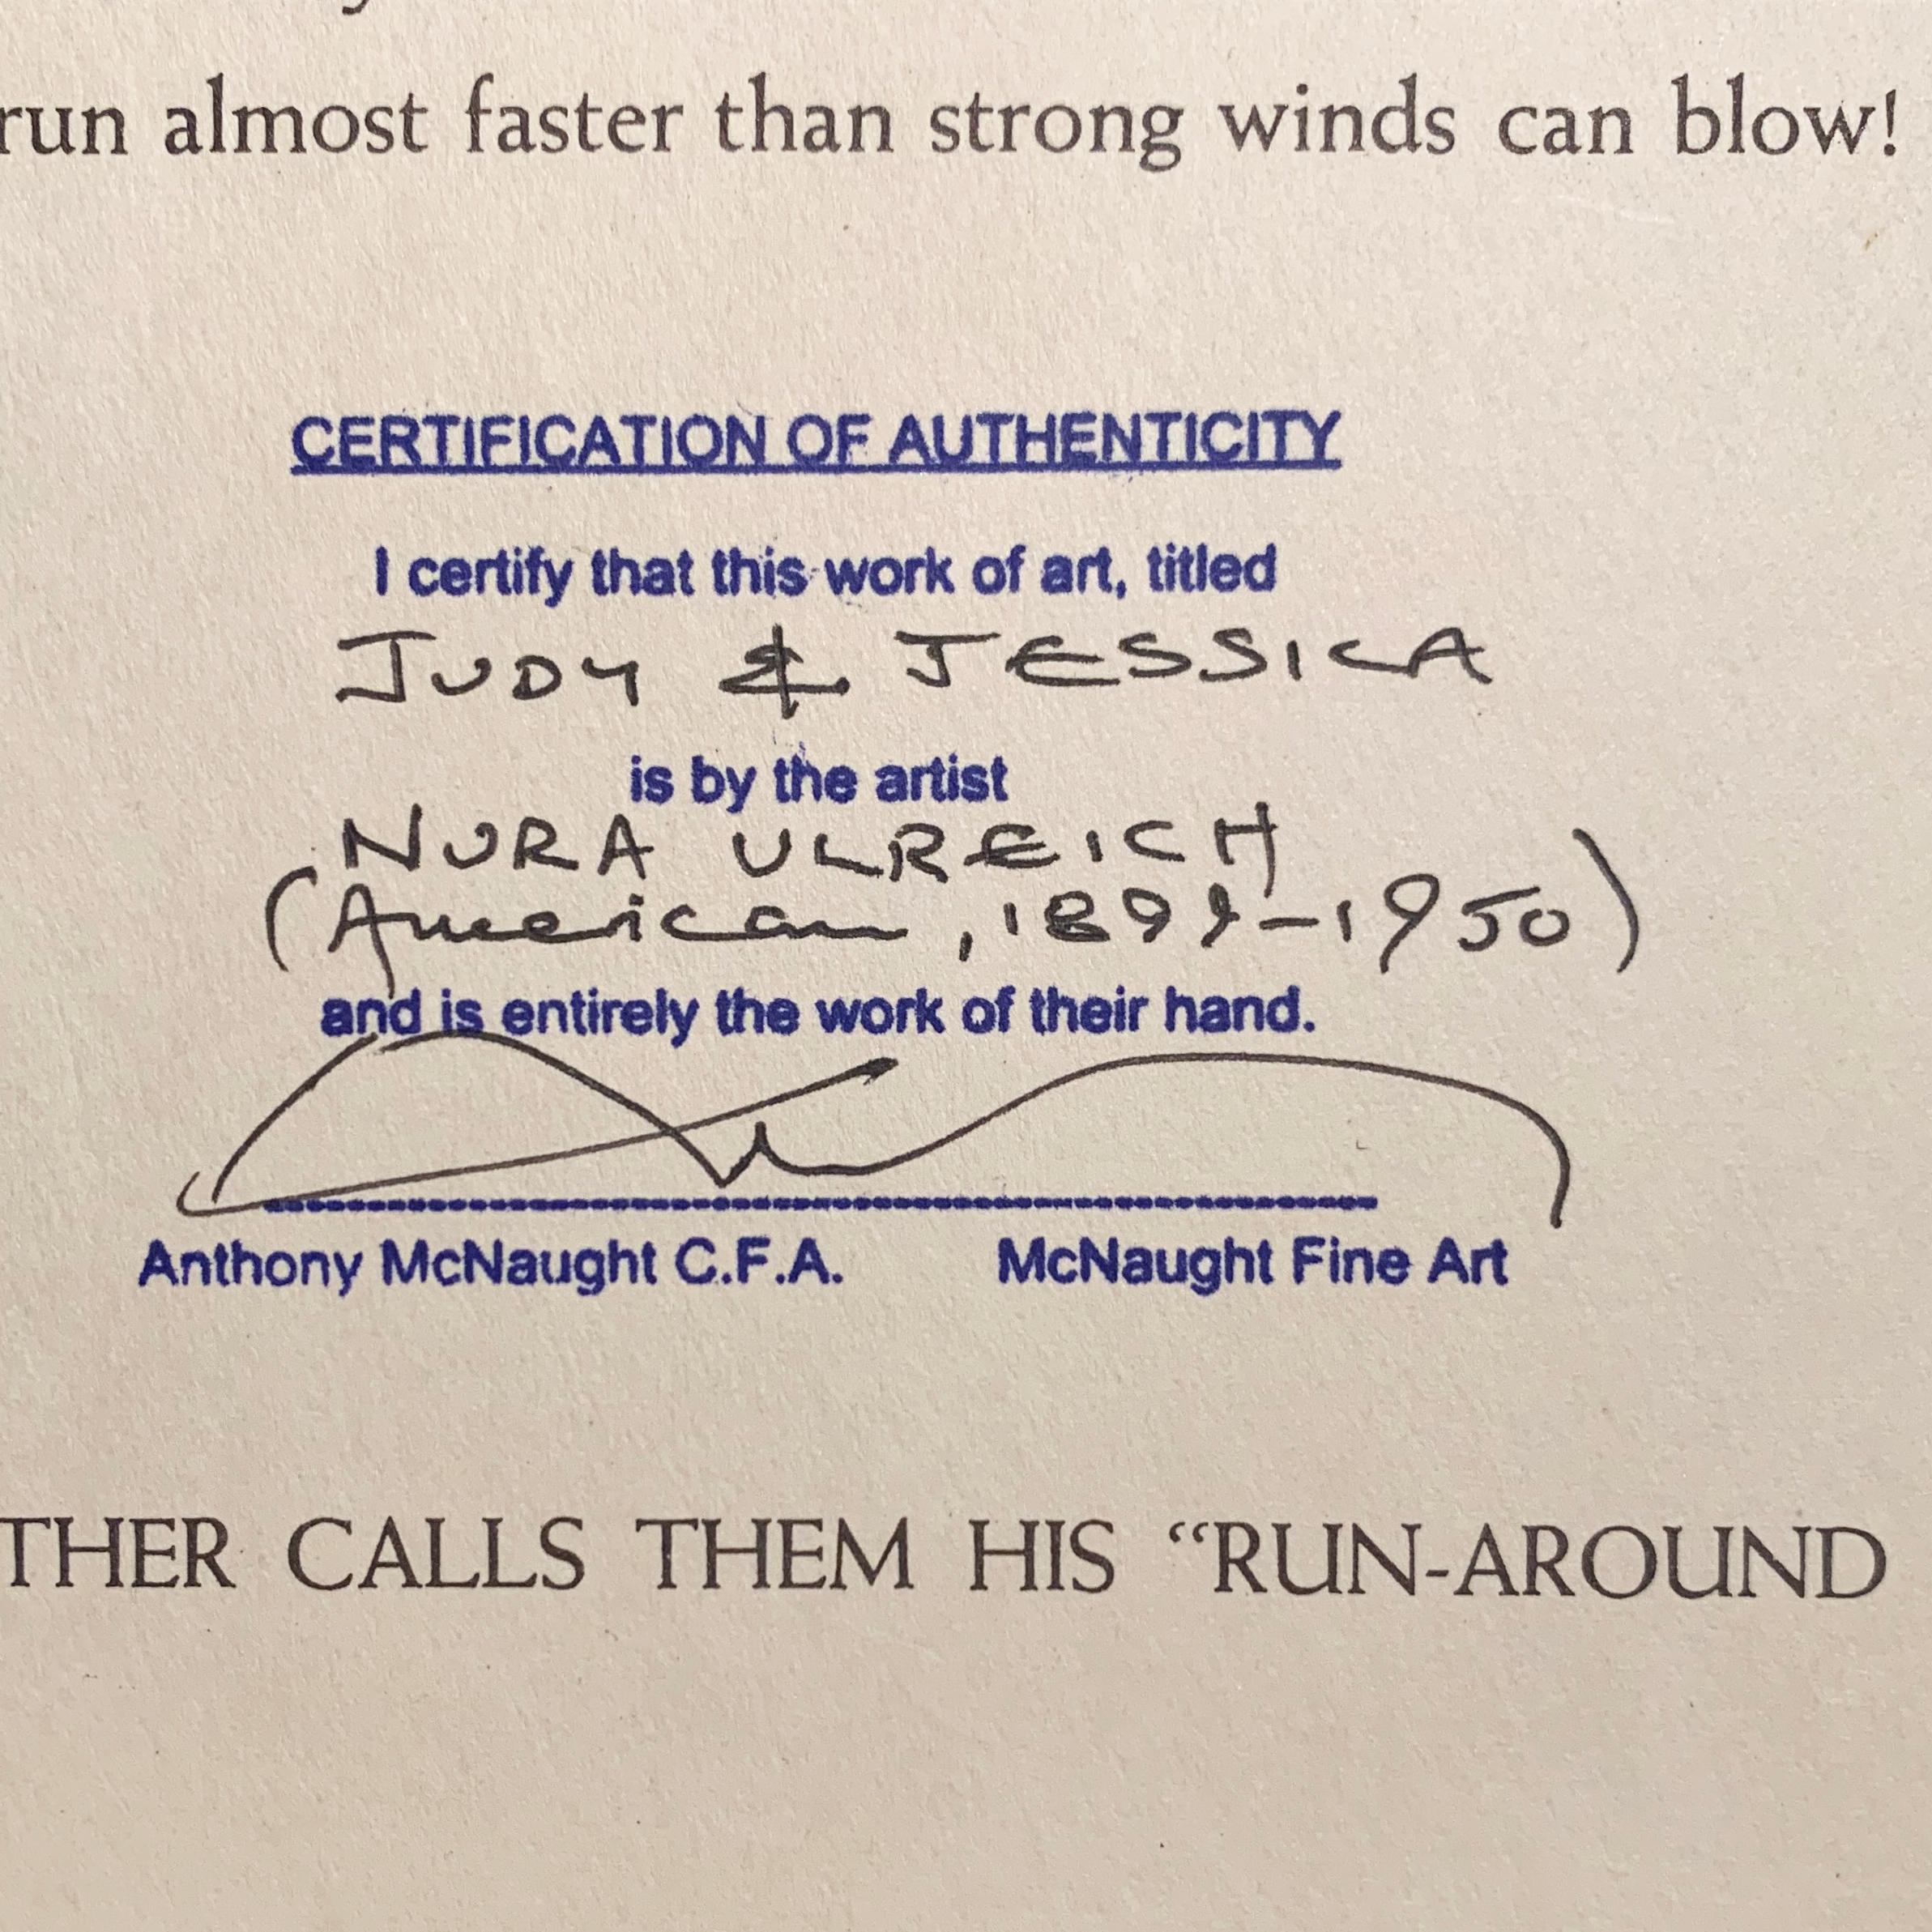 run almost faster than strong winds can blow!
CERTIFICATION OF AUTHENTICITY
I certify that this work of art, titled
JUDY & JESSICA
is by the artist
NURA ULREICH
(American, 1899-1950)
and is entirely the work of their hand.
Anthony McNaught C.F.A. McNaught Fine Art
THER CALLS THEM HIS “RUN-AROUND